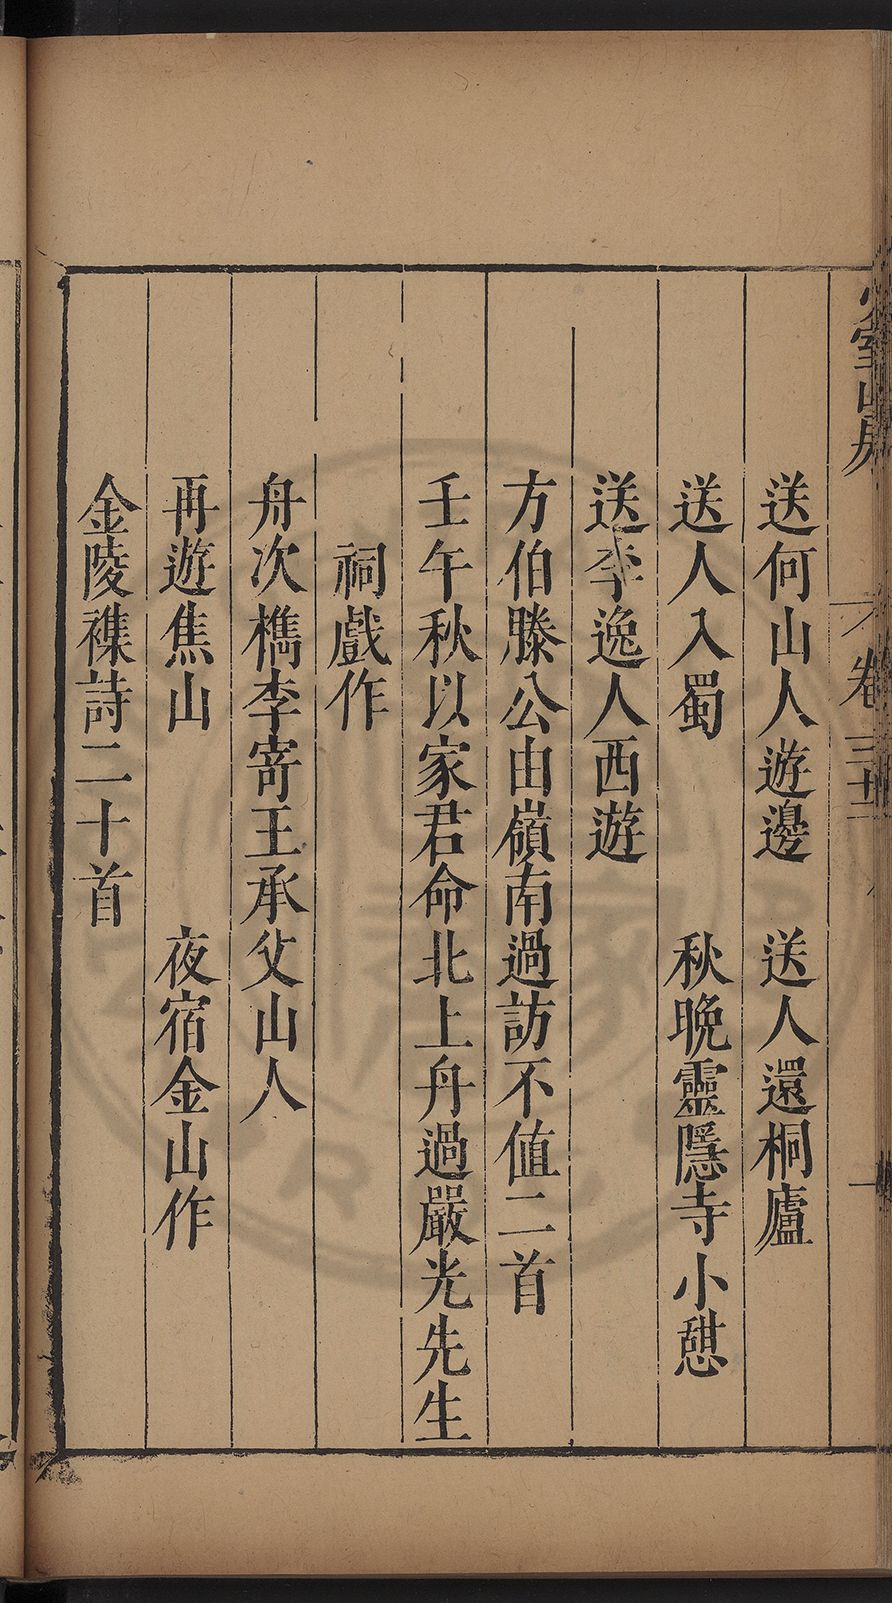 少室山房
卷三十二
一
送何山人遊邊　送人還桐廬
送人入蜀　秋晚靈隱寺小憇
送李逸人西遊
方伯滕公由嶺南過訪不值二首
壬午秋以家君命北上舟過嚴光先生
祠戲作
舟次檇李寄王承父山人
再遊焦山　夜宿金山作
金陵襍詩二十首